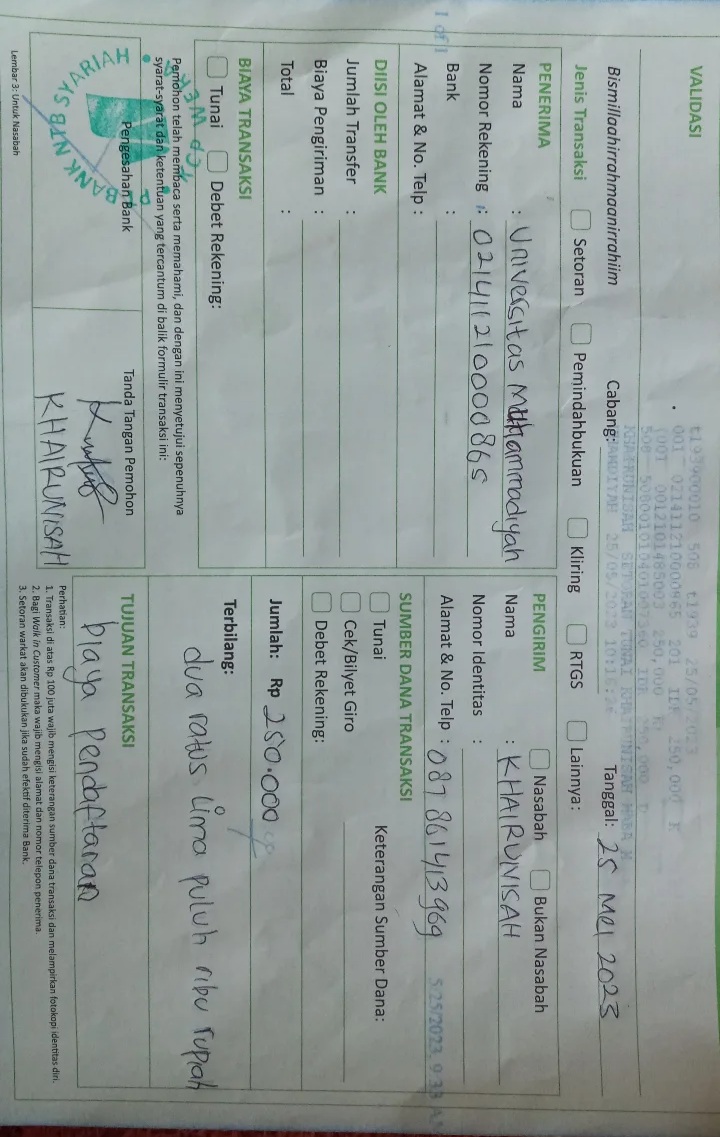 VALIDASI
t1939 25/05/2023
001 021411210000865 201 IDR 250,000 K
001 0012101485003 250,000 K
KHAIRUNISAH SETORAN TUNAI KHAIRUNISAH
25/05/2023
Bismillaahirrahmaanirrahiim
Cabang:
Tanggal: 25 MEI 2023
Jenis Transaksi
Setoran
Pemindahbukuan
Kliring
RTGS
Lainnya:
PENERIMA
Nama : Universitas Muhammadiyah
Nomor Rekening : 021411210000865
Bank :
Alamat & No. Telp :
1 of 1
PENGIRIM
Nasabah
Bukan Nasabah
Nama : KHAIRUNISAH
Nomor Identitas :
Alamat & No. Telp : 087861413969
5/25/2023, 9:33 A
DIISI OLEH BANK
Jumlah Transfer :
Biaya Pengiriman :
Total :
SUMBER DANA TRANSAKSI
Tunai
Keterangan Sumber Dana:
Cek/Bilyet Giro
Debet Rekening:
BIAYA TRANSAKSI
Tunai
Debet Rekening:
Jumlah: Rp 250.000
Terbilang:
dua ratus lima puluh ribu rupiah
Pemohon telah membaca serta memahami, dan dengan ini menyetujui sepenuhnya
syarat-syarat dan ketentuan yang tercantum di balik formulir transaksi ini:
Pengesahan Bank
BANK NTB SYARIAH
Tanda Tangan Pemohon
KHAIRUNISAH
TUJUAN TRANSAKSI
biaya Pendaftaran
Perhatian:
1. Transaksi di atas Rp 100 juta wajib mengisi keterangan sumber dana transaksi dan melampirkan fotokopi identitas diri.
2. Bagi Walk in Customer maka wajib mengisi alamat dan nomor telepon penerima.
3. Setoran warkat akan dibukukan jika sudah efektif diterima Bank.
Lembar 3: Untuk Nasabah